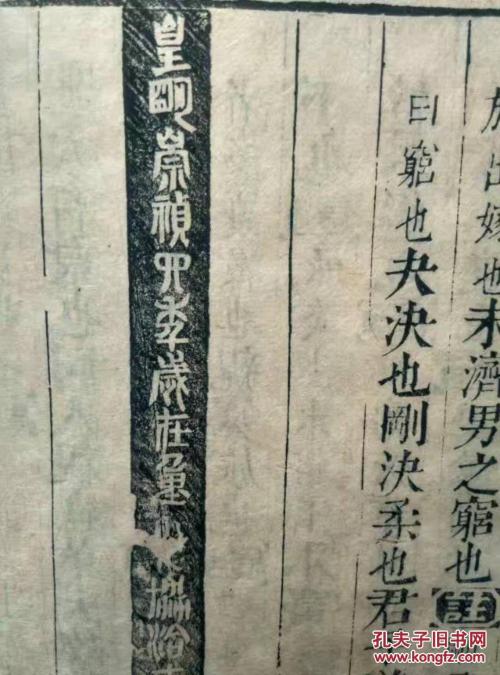 於出嫁也未濟男之窮也註
曰窮也夬決也剛決柔也君
皇明崇禎四秊歲在重光協洽
孔夫子旧书网
www.kongfz.com